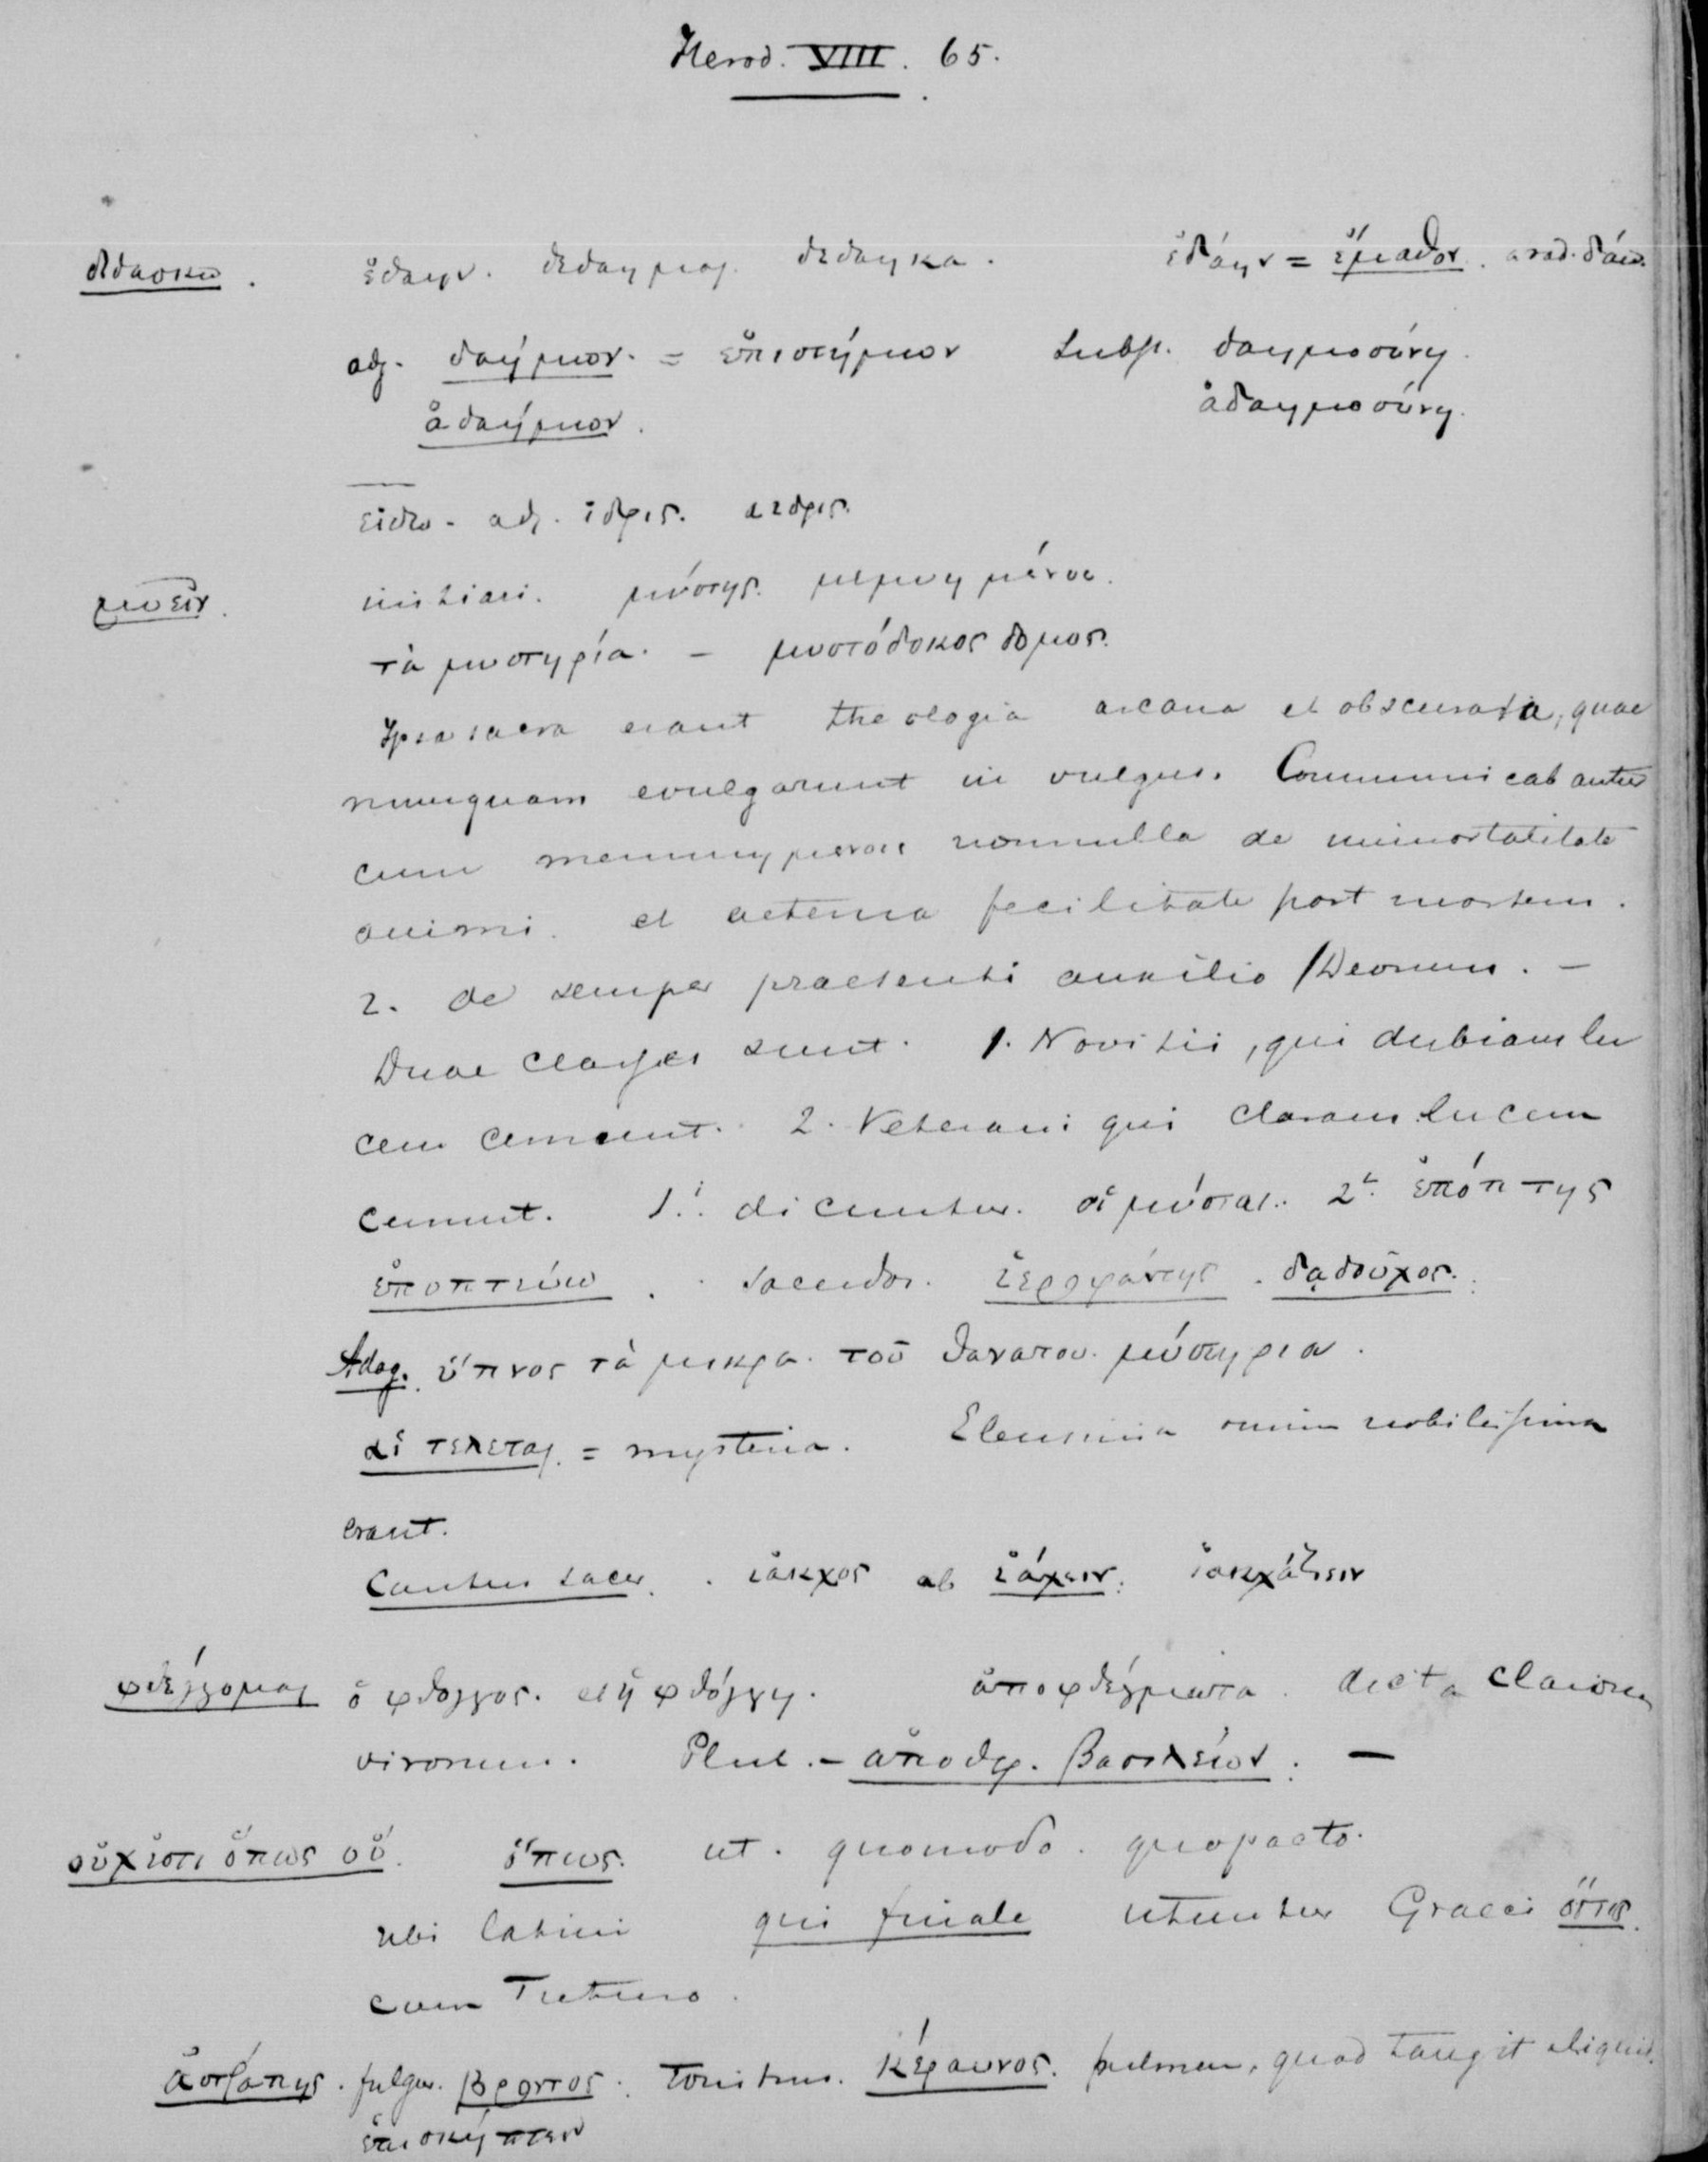 Herod. VIII. 65.
διδασκω. ἐδαην. δεδαημαι. δεδαηκα. ἐδάην = ἔμαθον. a rad. δάω.
adj. δαήμων. = ἐπιστήμων Subst. δαημοσύνη.
ἀδαήμων. ἀδαημοσύνη.
εἰδω - adj. ἰδρις. αιδρις.
μυεῖν. initiari. μύστης. μεμυημένοι.
τὰ μυστηρία. - μυστόδοκος δομος.
Ipsa sacra erant theologia arcana et obscurata, quae
nunquam evulgarunt in vulgus. Communicabantur
cum memuημενοις nonnulla de immortalitate
animi. et aeterna fecilitate post mortem.
2. de semper praesenti auxilio Deorum. -
Duae classes sunt. 1. Novitii, qui dubiam lu
cem cernunt. 2. Veterani qui claram lucem
cernunt. 1.i dicuntur. οἱ μύσται. 2i. ἐπόπτης
ἐποπτεύω. Sacerdos. ἱεροφάντης. δᾳδοῦχος.
Adag. ὕπνος τὰ μικρα. τοῦ θανατου. μύστηρια.
αἱ τελεται. = mysteria. Eleusinia omnium nobilissima
erant.
Cantus sacer. ἰακχος ab ἰάχειν. ἰακχάζειν
φθέγγομαι ὁ φθογγος. et ἡ φθόγγη. ἀποφθέγματα. dicta clarorum
virorum. Plut. - ἀποθφ. βασιλείων. -
οὐκ ἐστι ὅπως οὐ. ὅπως. ut. quomodo. quo pacto.
ubi latini qui finale utuntur Graeci ὅστις.
cum Futuro.
ἀστράπης. fulgur. βροντος. tonitrus. κέραυνος. fulmen, quod tangit aliquid.
ἐπισκήπτειν